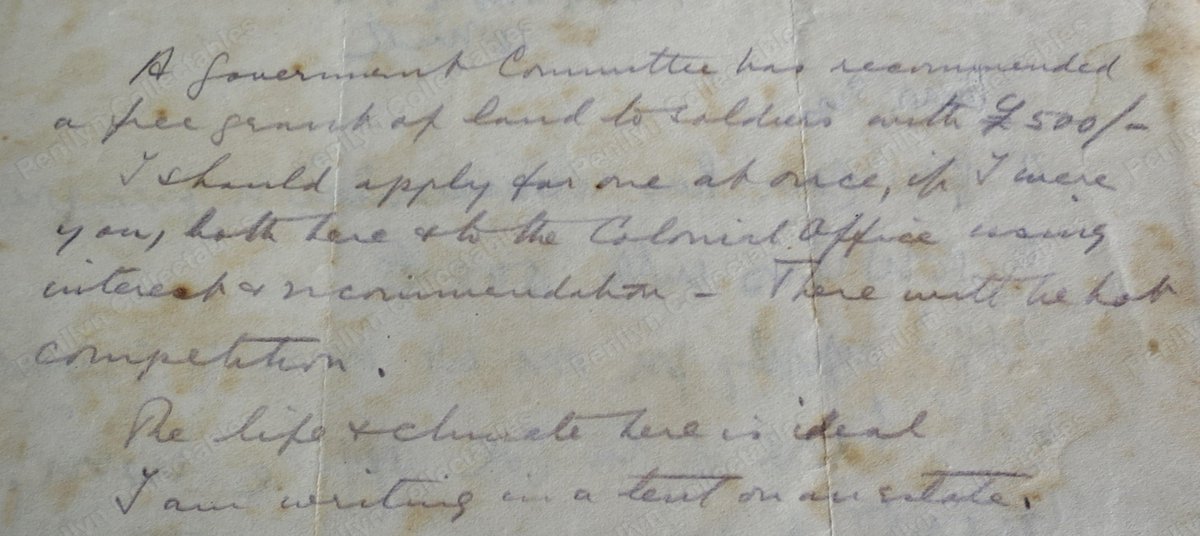 A Government Committee has recommended
a free grant of land to soldiers with £500/-
I should apply for one at once, if I were
you, both here & to the Colonial Office using
interest & recommendation - There will be hot
competition.
The life & climate here is ideal
I am writing in a tent on an estate.